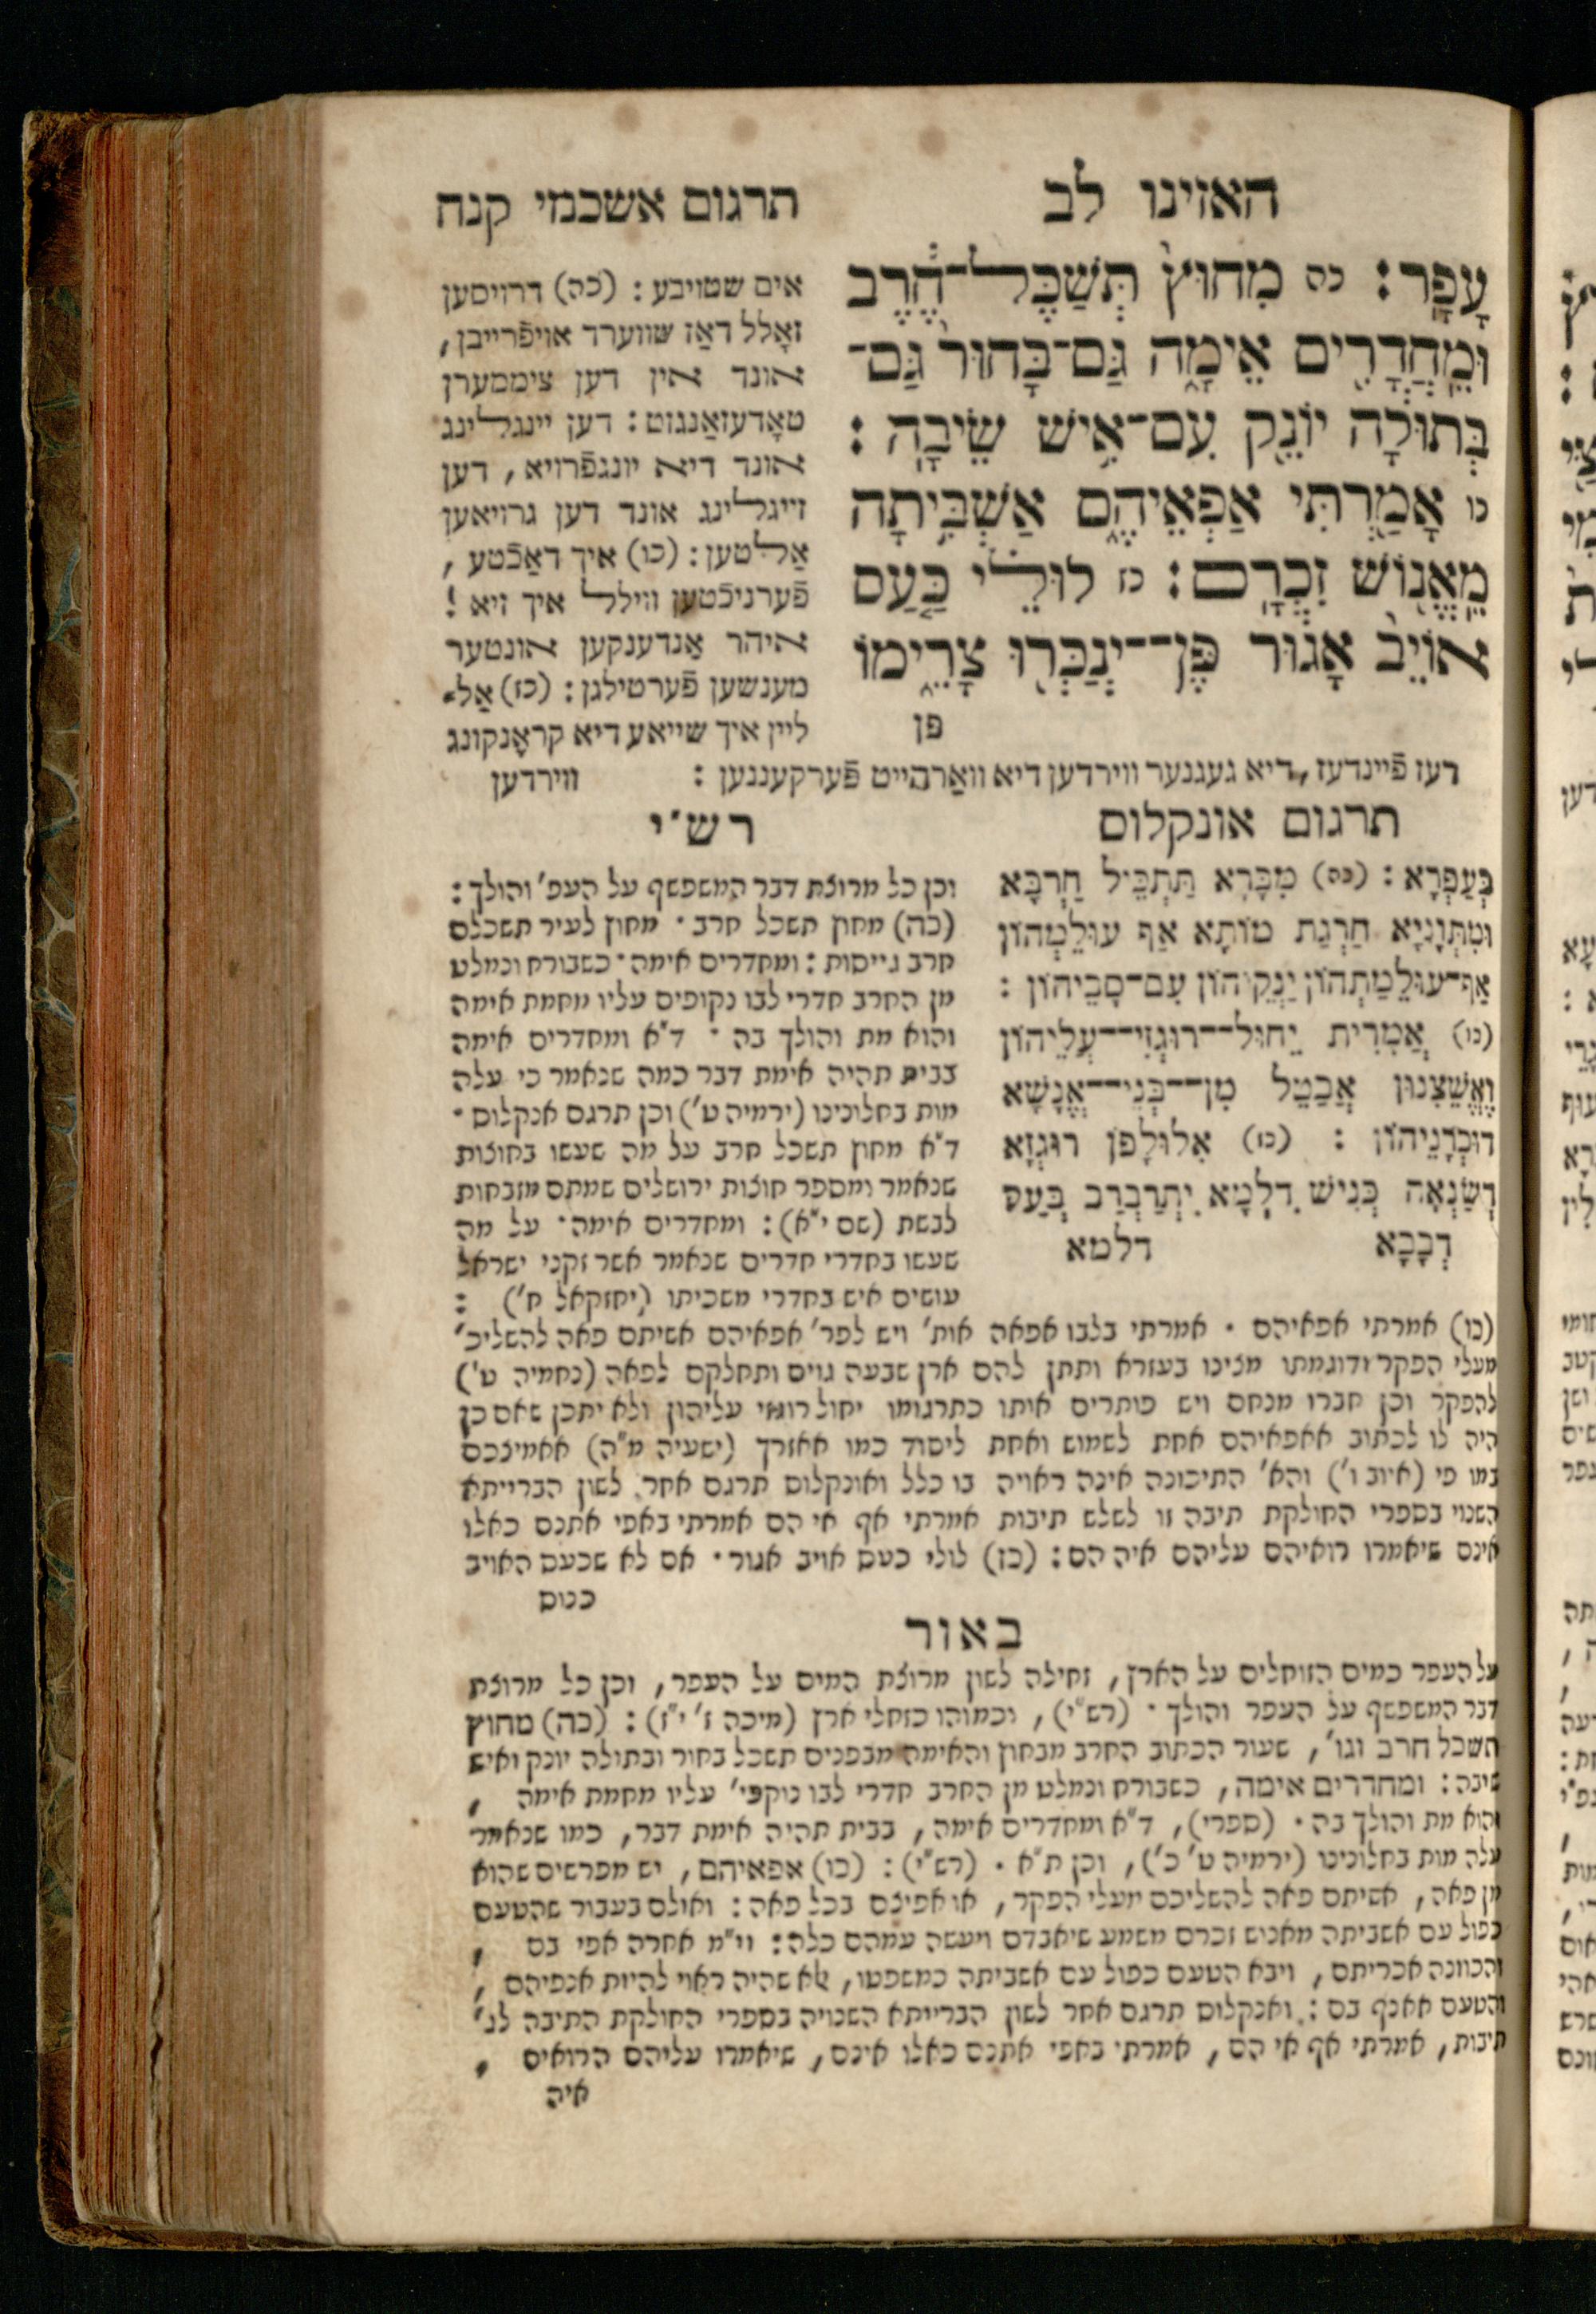 האזינו לב
תרגום אשכמזי קנח
עָפָר׃ כה מִחוּץ֙ תְּשַׁכֶּל־חֶ֔רֶב
וּמֵחֲדָרִ֖ים אֵימָ֑ה גַּם־בָּחוּר֙ גַּם־
בְּתוּלָ֔ה יוֹנֵ֖ק עִם־אִ֥ישׁ שֵׂיבָֽה׃
כו אָמַ֖רְתִּי אַפְאֵיהֶ֑ם אַשְׁבִּ֥יתָה
מֵאֱנ֖וֹשׁ זִכְרָֽם׃ כז לוּלֵ֗י כַּ֤עַס
אוֹיֵב֙ אָג֔וּר פֶּֽן־יְנַכְּר֖וּ צָרֵ֑ימוֹ
פן
אים שטויבע : (כה) דרויסען
זאָלל דאַז שווערד אויפֿרייבן,
אונד אין דען צימסערן
טאָדעזאַנגזט : דען יינגלינג
אונד דיא יונגפֿרויא, דען
זייגלינג אונד דען גרויאען
אַלטען : (כו) איך דאַכֿטע,
פֿערניכֿטען ווילל איך זיא !
איהר אַנדענקען אונטער
מענשען פֿערטילגן : (כז) אַל-
ליין איך שייאע דיא קראָנקונג
דעז פֿיינדעז, דיא געגנער ווירדען דיא וואַרהייט פֿערקעננען :
ווירדען
תרגום אונקלוס
בְּעַפְרָא : (כה) מִבָּרָא תַּתְכֵּיל חַרְבָּא
וּמִתְּוָנַיָא חַרְגַת מוֹתָא אַף עוּלֵמְהוֹן
אַף־עוּלֵמַתְהוֹן יָנְקֵיהוֹן עִם־סָבֵיהוֹן :
(כו) אֲמָרִית יֵחוּל־רוּגְזִי־עֲלֵיהוֹן
וֶאֱשֵׁצִנוּן אֲבַטֵל מִן־בְּנֵי־אֱנָשָׁא
דוּכְרָנֵיהוֹן : (כז) אִלוּלָפוֹן רוּגְזָא
דְּשַׂנְאָה כְּנִישׁ דִלְמָא יִתְרַבְרַב בְּעֵל
דְּבָבָא
דלמא
רש״י
וכן כל מרוצת דבר המשפשף על העפ׳ והולך :
(כה) מחוץ תשכל חרב ׳ מחוץ לעיר תשכלם
חרב גייסות : ומחדרים אימה ׳ כשבורח ונמלט
מן החרב חדרי לבו נקופים עליו מחמת אימה
והוא מת והולך בה ׳ ד״א ומחדרים אימה
בבית תהיה אימת דבר כמה שנאמר כי עלה
מות בחלונינו (ירמיה ט׳) וכן תרגם אנקלוס ׳
ד״א מחוץ תשכל חרב על מה שעשו בחוצות
שנאמר ומספר חוצות ירושלים שמתם מזבחות
לבשת (שם י״א) : ומחדרים אימה ׳ על מה
שעשו בחדרי חדרים שנאמר אשר זקני ישראל
עושים איש בחדרי משכיתו (יחזקאל ח׳) :
(כו) אמרתי אפאיהם ׳ אמרתי בלבו אפאה אות׳ ויש לפר׳ אפאיהם אשיתם פאה להשליכ׳
מעלי הפקר ודוגמתו מצינו בעזרא ותתן להם ארץ שבעה גוים ותחלקם לפאה (נחמיה ט׳)
להפקר וכן חברו מנחם ויש פותרים אותו כתרגומו יחול רוגזי עליהון ולא יתכן שאם כן
היה לו לכתוב אאפאיהם אחת לשמוש ואחת ליסוד כמו אאזרך (ישעיה מ״ה) אאמיצכם
במו פי (איוב ו׳) והא׳ התיכונה אינה ראויה בו כלל ואונקלוס תרגם אחר לשון הברייתא
השנוי בספרי החולקת תיבה זו לשלש תיבות אמרתי אף אי הם אמרתי באפי אתנם כאלו
אינם שיאמרו רואיהם עליהם איה הם : (כז) לולי כעס אויב אגור ׳ אם לא שכעס האויב
כנוס
באור
על העפר כמים הזוחלים על הארץ, זחילה לשון מרוצת המים על העפר, וכן כל מרוצת
דבר המשפשף על העפר והולך ׳ (רש״י), וכמוהו כזחלי ארץ (מיכה ז׳ י״ז) : (כה) מחוץ
תשכל חרב וגו׳, שעור הכתוב החרב מבחוץ והאימה מבפנים תשכל בחור ובתולה יונק ואיש
שיבה : ומחדרים אימה, כשבורח ונמלט מן החרב חדרי לבו נוקפי׳ עליו מחמת אימה,
והוא מת והולך בה ׳ (ספרי), ד״א ומחדרים אימה, בבית תהיה אימת דבר, כמו שנאמר
עלה מות בחלונינו (ירמיה ט׳ כ׳), וכן ת״א ׳ (רש״י) : (כו) אפאיהם, יש מפרשים שהוא
מן פאה, אשיתם פאה להשליכם מעלי הפקר, או אפיצם בכל פאה : ואולם בעבור שהטעם
כפול עם אשביתה מאנוש זכרם משמע שיאבדם ויעשה עמהם כלה : וי״מ אחרה אפי בם,
והכוונה אכריתם, ויבא הטעם כפול עם אשביתה כמשפטו, אלא שהיה ראוי להיות אנפיהם,
והטעם אאנף בם : ואנקלוס תרגם אחר לשון הברייתא השנויה בספרי החולקת התיבה לג׳
תיבות, אמרתי אף אי הם, אמרתי באפי אתנם כאלו אינם, שיאמרו עליהם הרואים,
איה